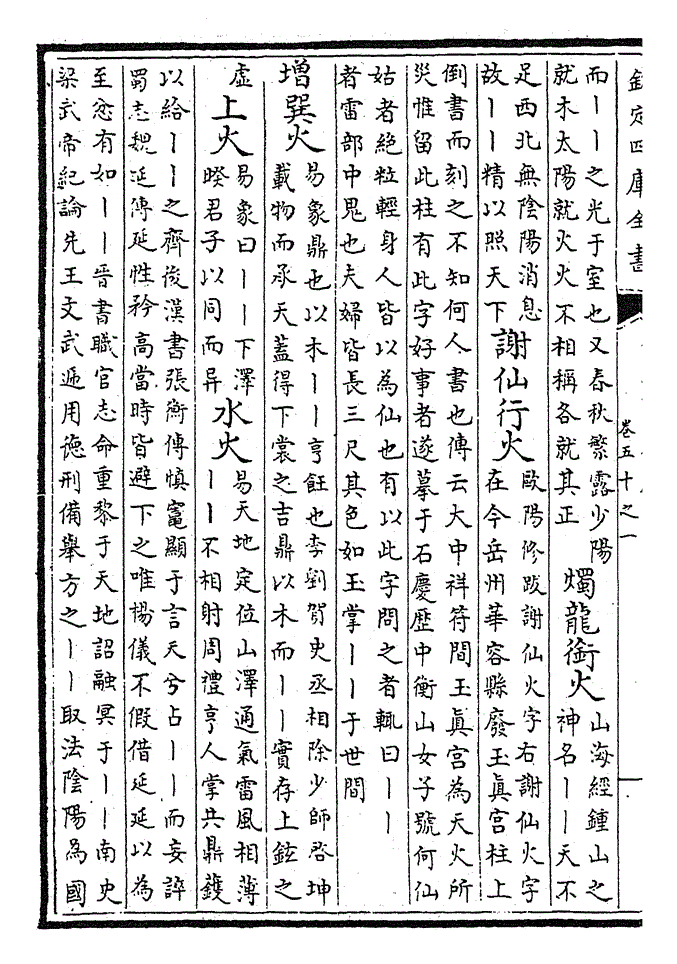 欽定四庫全書
卷五十之一
而丨丨之光于室也又春秋繁露少陽
就木太陽就火火不相稱各就其正
燭龍銜火
山海經鍾山之
神名丨丨天不
足西北無陰陽消息
故丨丨精以照天下
謝仙行火
歐陽修跋謝仙火字右謝仙火字
在今岳州華容縣廢玉真宮柱上
倒書而刻之不知何人書也傳云大中祥符間玉真宮為天火所
災惟留此柱有此字好事者遂摹于石慶歷中衡山女子號何仙
姑者絶粒輕身人皆以為仙也有以此字問之者輒曰丨丨
者雷部中鬼也夫婦皆長三尺其色如玉掌丨丨于世間
增巽火
易象鼎也以木丨丨亨飪也李劉賀史丞相除少師啓坤
載物而承天蓋得下裳之吉鼎以木而丨丨實存上鉉之
虛
上火
易象曰丨丨下澤
睽君子以同而异
水火
易天地定位山澤通氣雷風相薄
丨丨不相射周禮亨人掌共鼎鑊
以給丨丨之齊後漢書張衡傳慎竈顯于言天兮占丨丨而妄誶
蜀志魏延傳延性矜高當時皆避下之唯楊儀不假借延延以為
至忿有如丨丨晉書職官志命重黎于天地詔融冥于丨丨南史
梁武帝紀論先王文武遞用德刑備舉方之丨丨取法陰陽為國